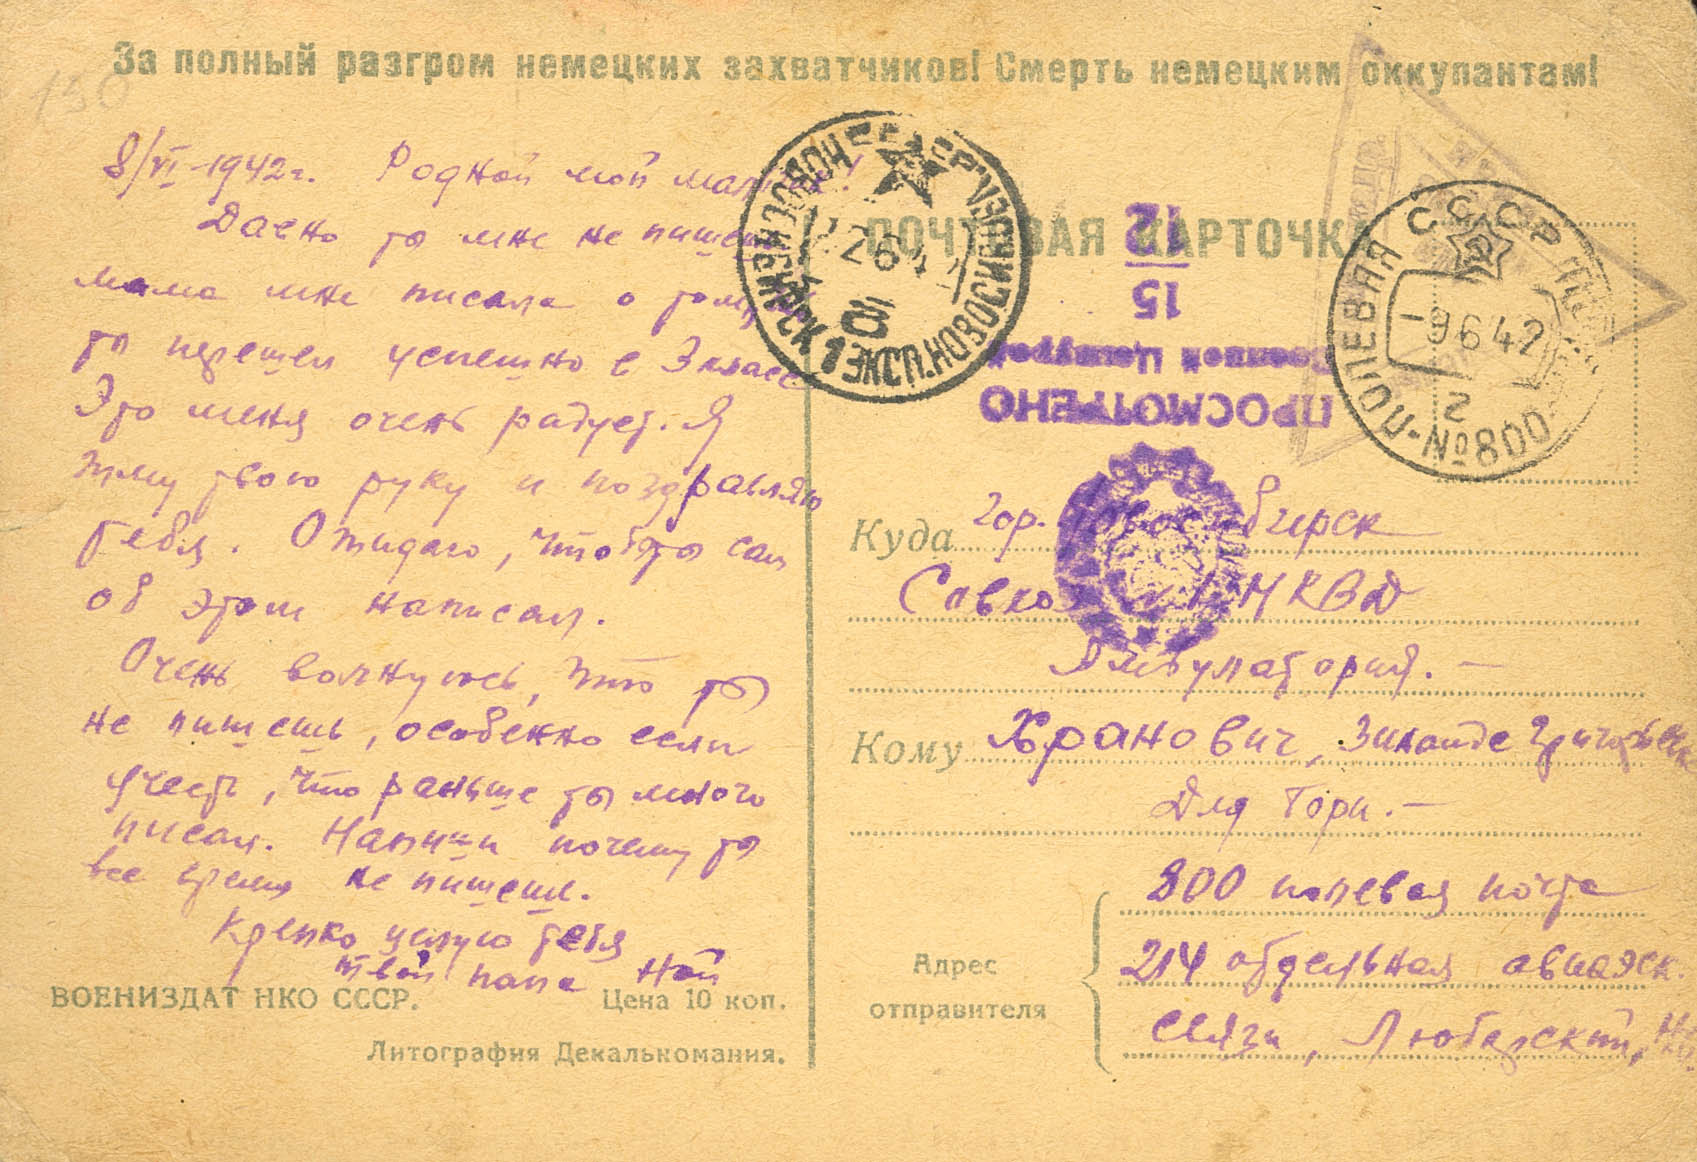 За полный разгром немецких захватчиков! Смерть немецким оккупантам!
130
8/VI-1942г. Родной мой мальчик!
Давно ты мне не пишешь
мама мне писала о том, что
ты перешел успешно в 3 класс
Это меня очень радует. Я
жму твою руку и поздравляю
тебя. Ожидаю, чтобы ты сам
об этом написал.
Очень волнуюсь, что ты
не пишешь, особенно если
учесть, что раньше ты много
писал. Напиши почему ты
все время не пишешь.
Крепко целую тебя
твой папа Ной
ВОЕНИЗДАТ НКО СССР. Цена 10 коп.
Литография Декалькомания.
ПОЧТОВАЯ КАРТОЧКА
НОВОСИБИРСК 1 ЭКСП. НОВОСИБИРСК
22 6 42
8
12
15
Военной Цензурой
ПРОСМОТРЕНО
СССР
ПОЛЕВАЯ
-9 6 42
2
№800
Куда гор. Новосибирск
Совхоз НКВД
Амбулатория.—
Кому Хранович, Зинаиде Григорьевне
Для Тори.—
Адрес
отправителя
800 полевая почта
214 отдельная авиаэск.
связи, Любарский, Н.